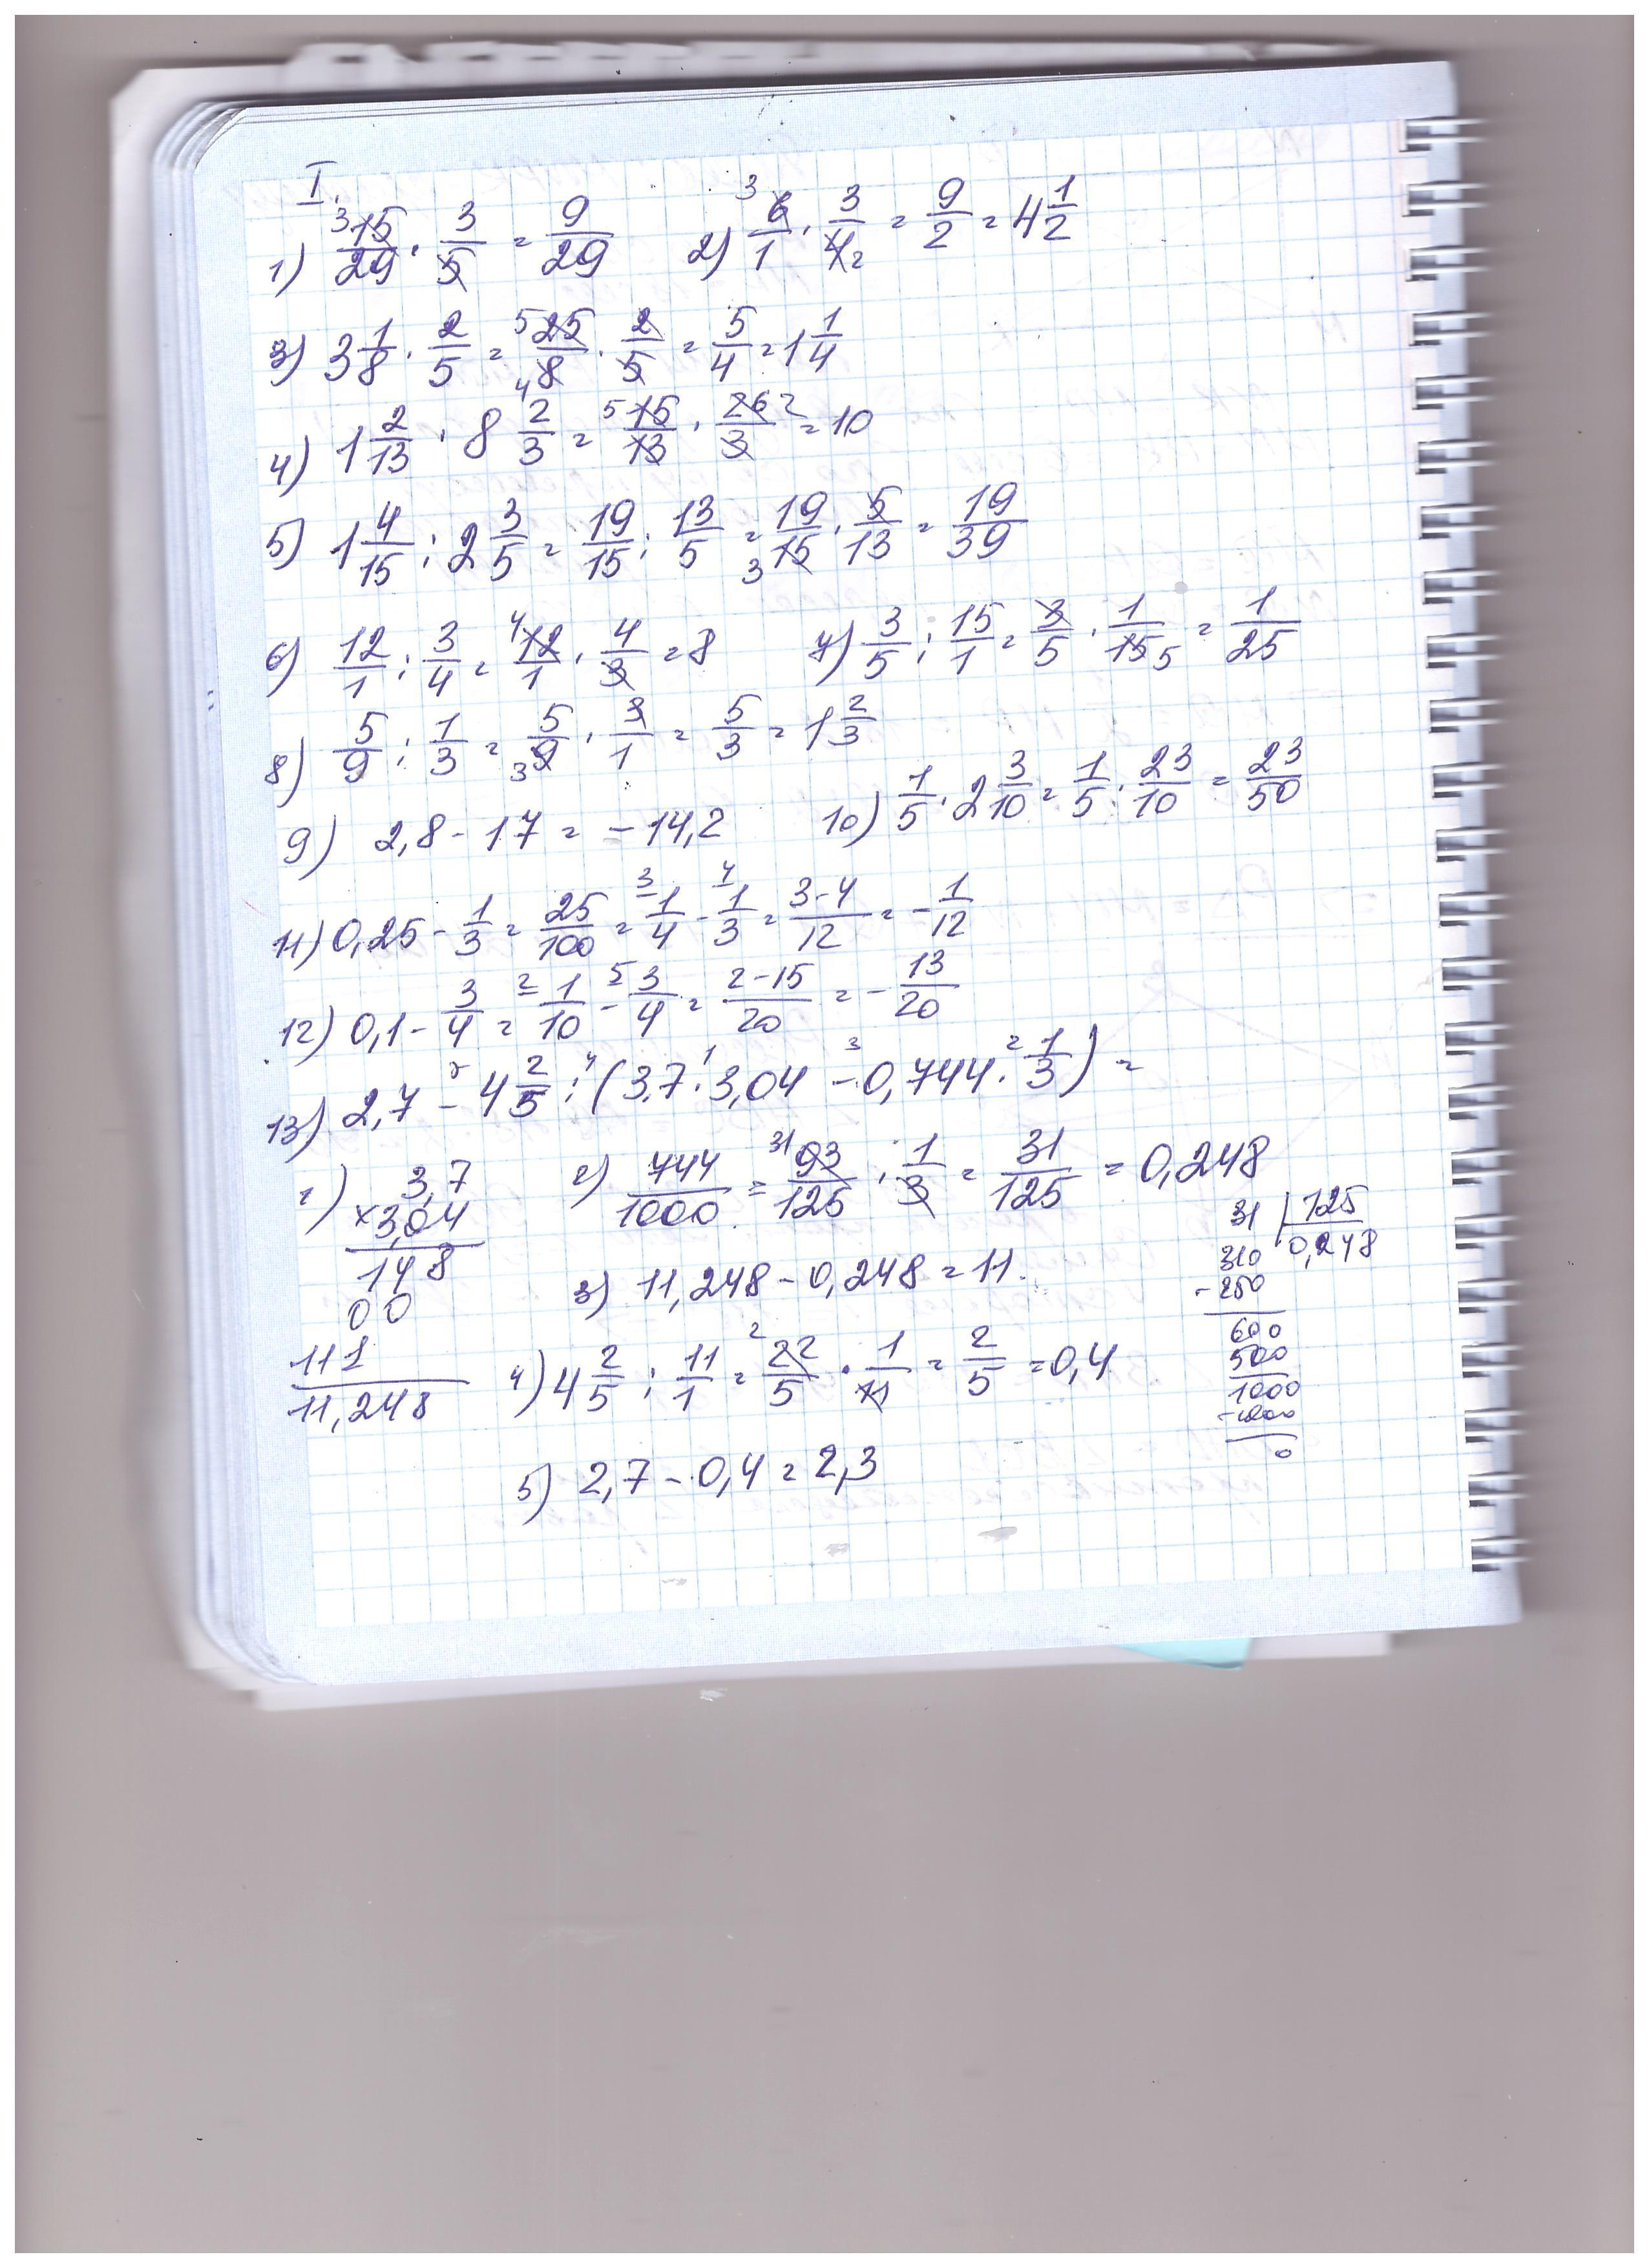 I.
1) 15/29 · 3/5 = 9/29 2) 6/1 · 3/4 = 9/2 = 4 1/2
3) 3 1/8 · 2/5 = 25/8 · 2/5 = 5/4 = 1 1/4
4) 1 2/13 · 8 2/3 = 15/13 · 26/3 = 10
5) 1 4/15 : 2 3/5 = 19/15 : 13/5 = 19/15 · 5/13 = 19/39
6) 12/1 : 3/4 = 12/1 · 4/3 = 8 7) 3/5 : 15/1 = 3/5 · 1/15 = 1/25
8) 5/9 : 1/3 = 5/9 · 3/1 = 5/3 = 1 2/3
9) 2,8 - 17 = - 14,2 10) 1/5 · 2 3/10 = 1/5 · 23/10 = 23/50
11) 0,25 - 1/3 = 25/100 = 1/4 - 1/3 = 3-4/12 = - 1/12
12) 0,1 - 3/4 = 1/10 - 3/4 = 2-15/20 = - 13/20
13) 2,7 - 4 2/5 : (3,7 · 3,04 - 0,744 · 1/3) =
1) 3,7 2) 744/1000 = 93/125 · 1/3 = 31/125 = 0,248
×3,04
148
00
111
11,248
31 | 125
310 0,248
- 250
600
500
1000
- 1000
0
3) 11,248 - 0,248 = 11.
4) 4 2/5 : 11/1 = 22/5 · 1/11 = 2/5 = 0,4
5) 2,7 - 0,4 = 2,3